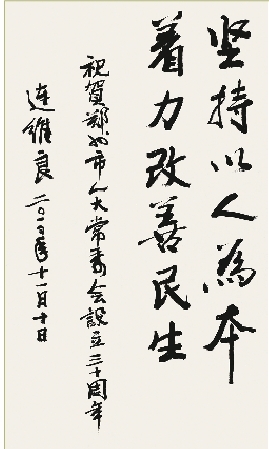 坚持以人為本
着力改善民生
祝賀郑州市人大常委会設立三十周年
連維良 二〇一〇年十一月十日